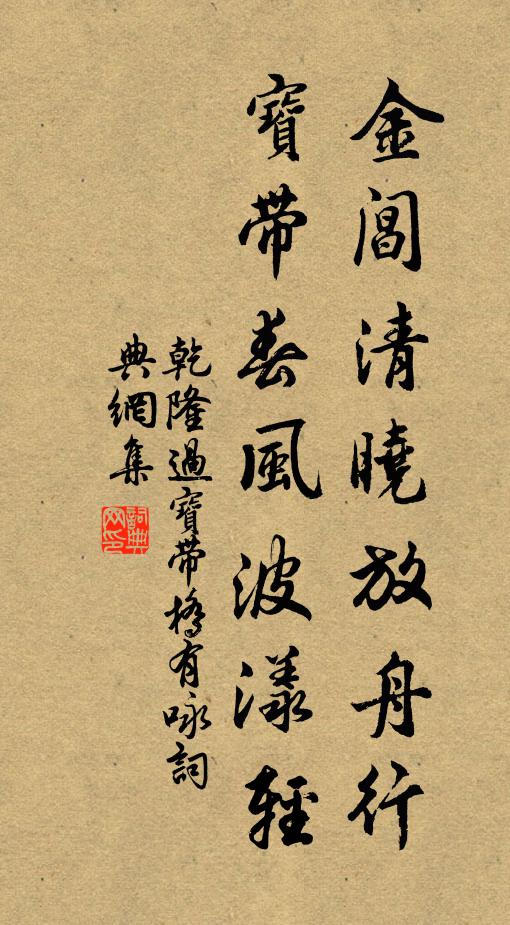 金閶清曉放舟行
寶帶春風波漾輕
乾隆過寶帶橋有咏詞
典網集
詞典
网印